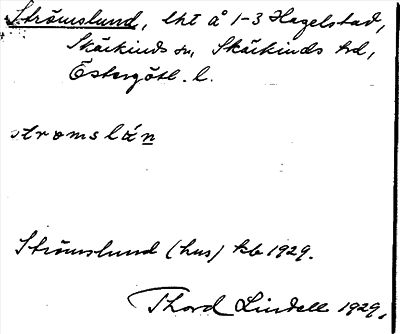 Strömslund, lht å 1-3 Hagelstad,
Skärkinds sn, Skärkinds hd,
Östergötl. l.
stromslán
Strömslund (hus) kb 1929.
Thord Lindell 1929.